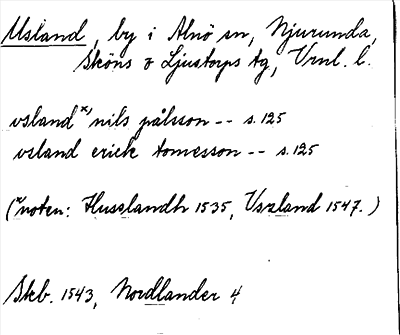 Usland, by i Alnö sn, Njurunda,
Sköns o Ljustorps tg, Vrnl. l.
vsland *) nils pålsson -- s. 125
vsland erick tomesson -- s. 125
(*) noten: Husslandh 1535, Vszland 1547.)
Skb. 1543, Nordlander 4